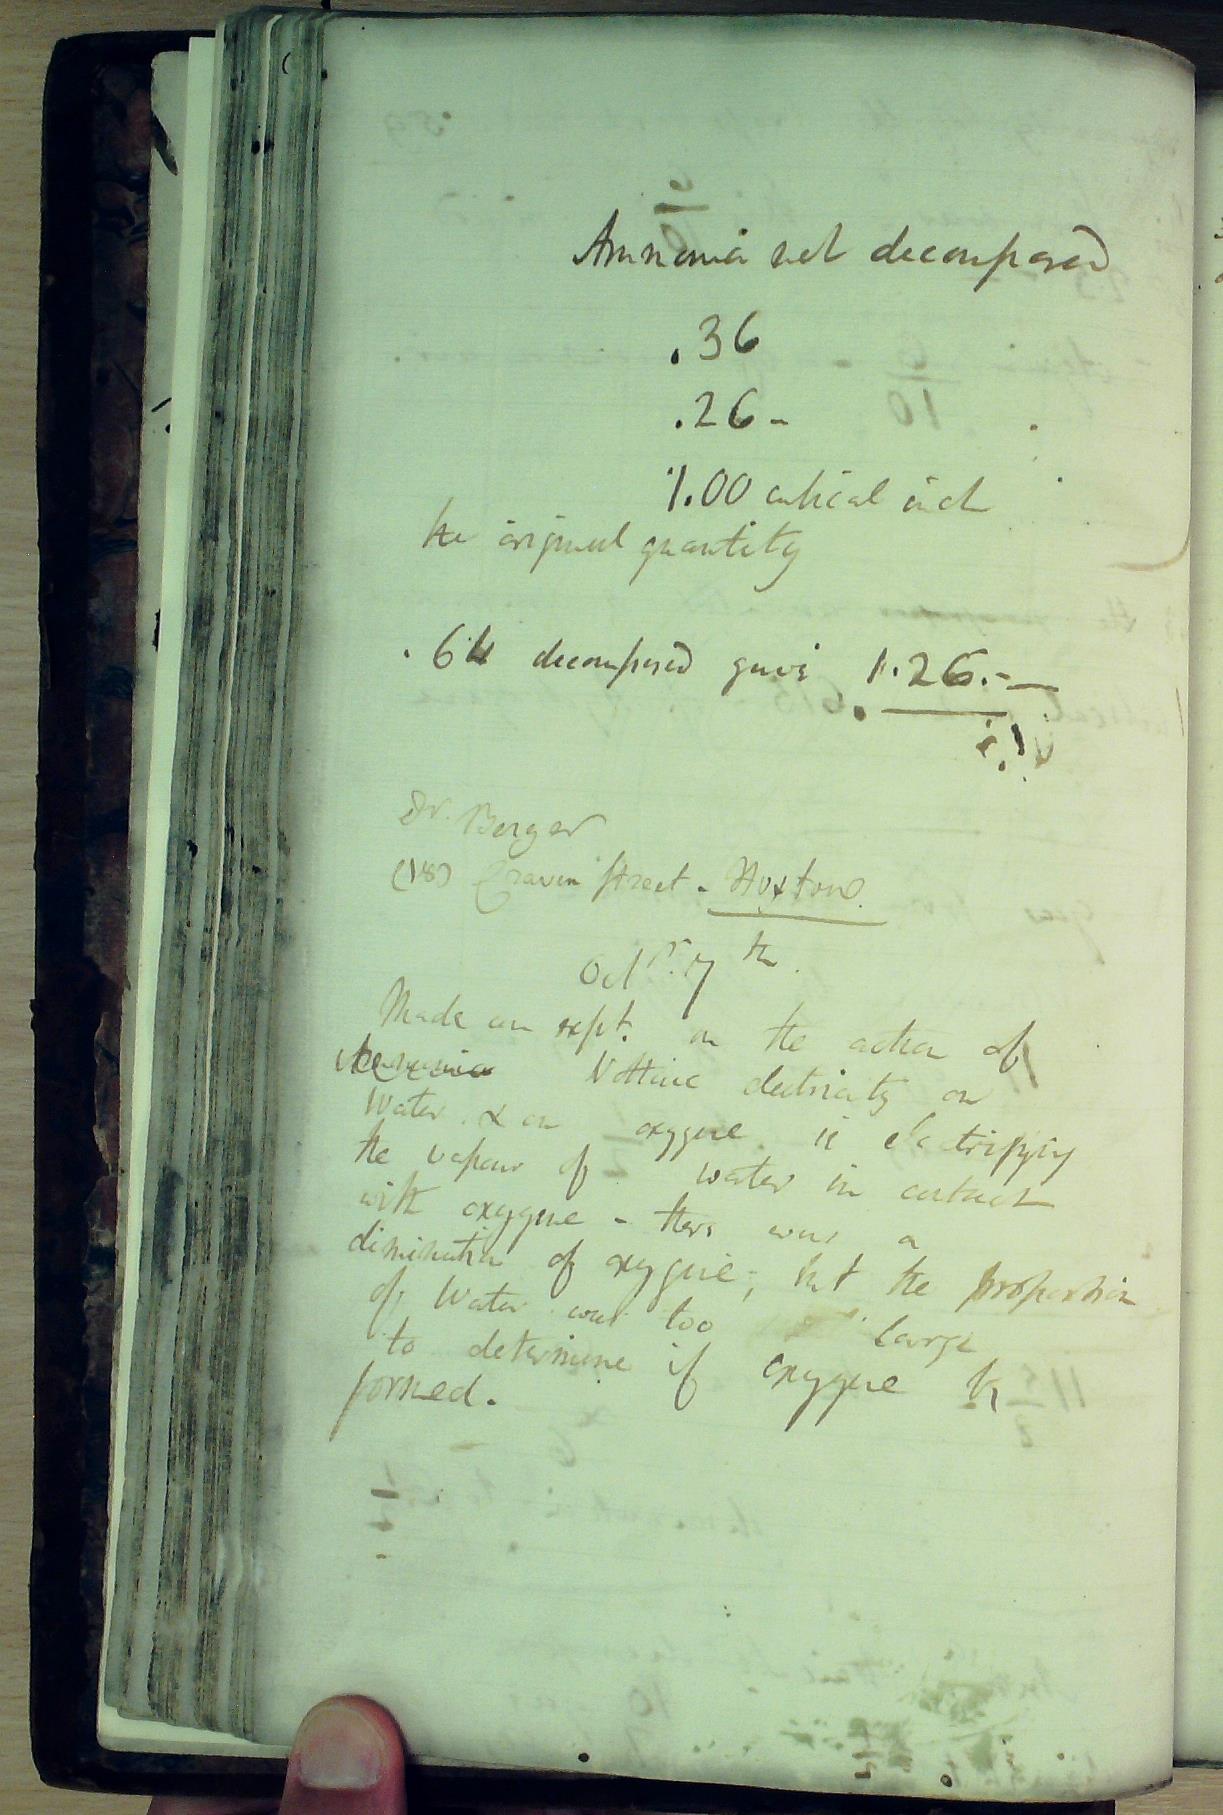 Ammonia not decomposed
.36
.26-
1.00 cubical inch
the original quantity
.64 decomposed gave 1.26.-
Dr. Berger
(18) Craven Street - Hoxton.
Octr. 7th.
Made an expt. on the action of
Ammonia Voltaic electricity on
Water & on oxygene in electrifying
the vapour of water in contact
with oxygene - there was a
diminution of oxygene; but the proportion
of Water was too large
to determine if oxygene be
formed.